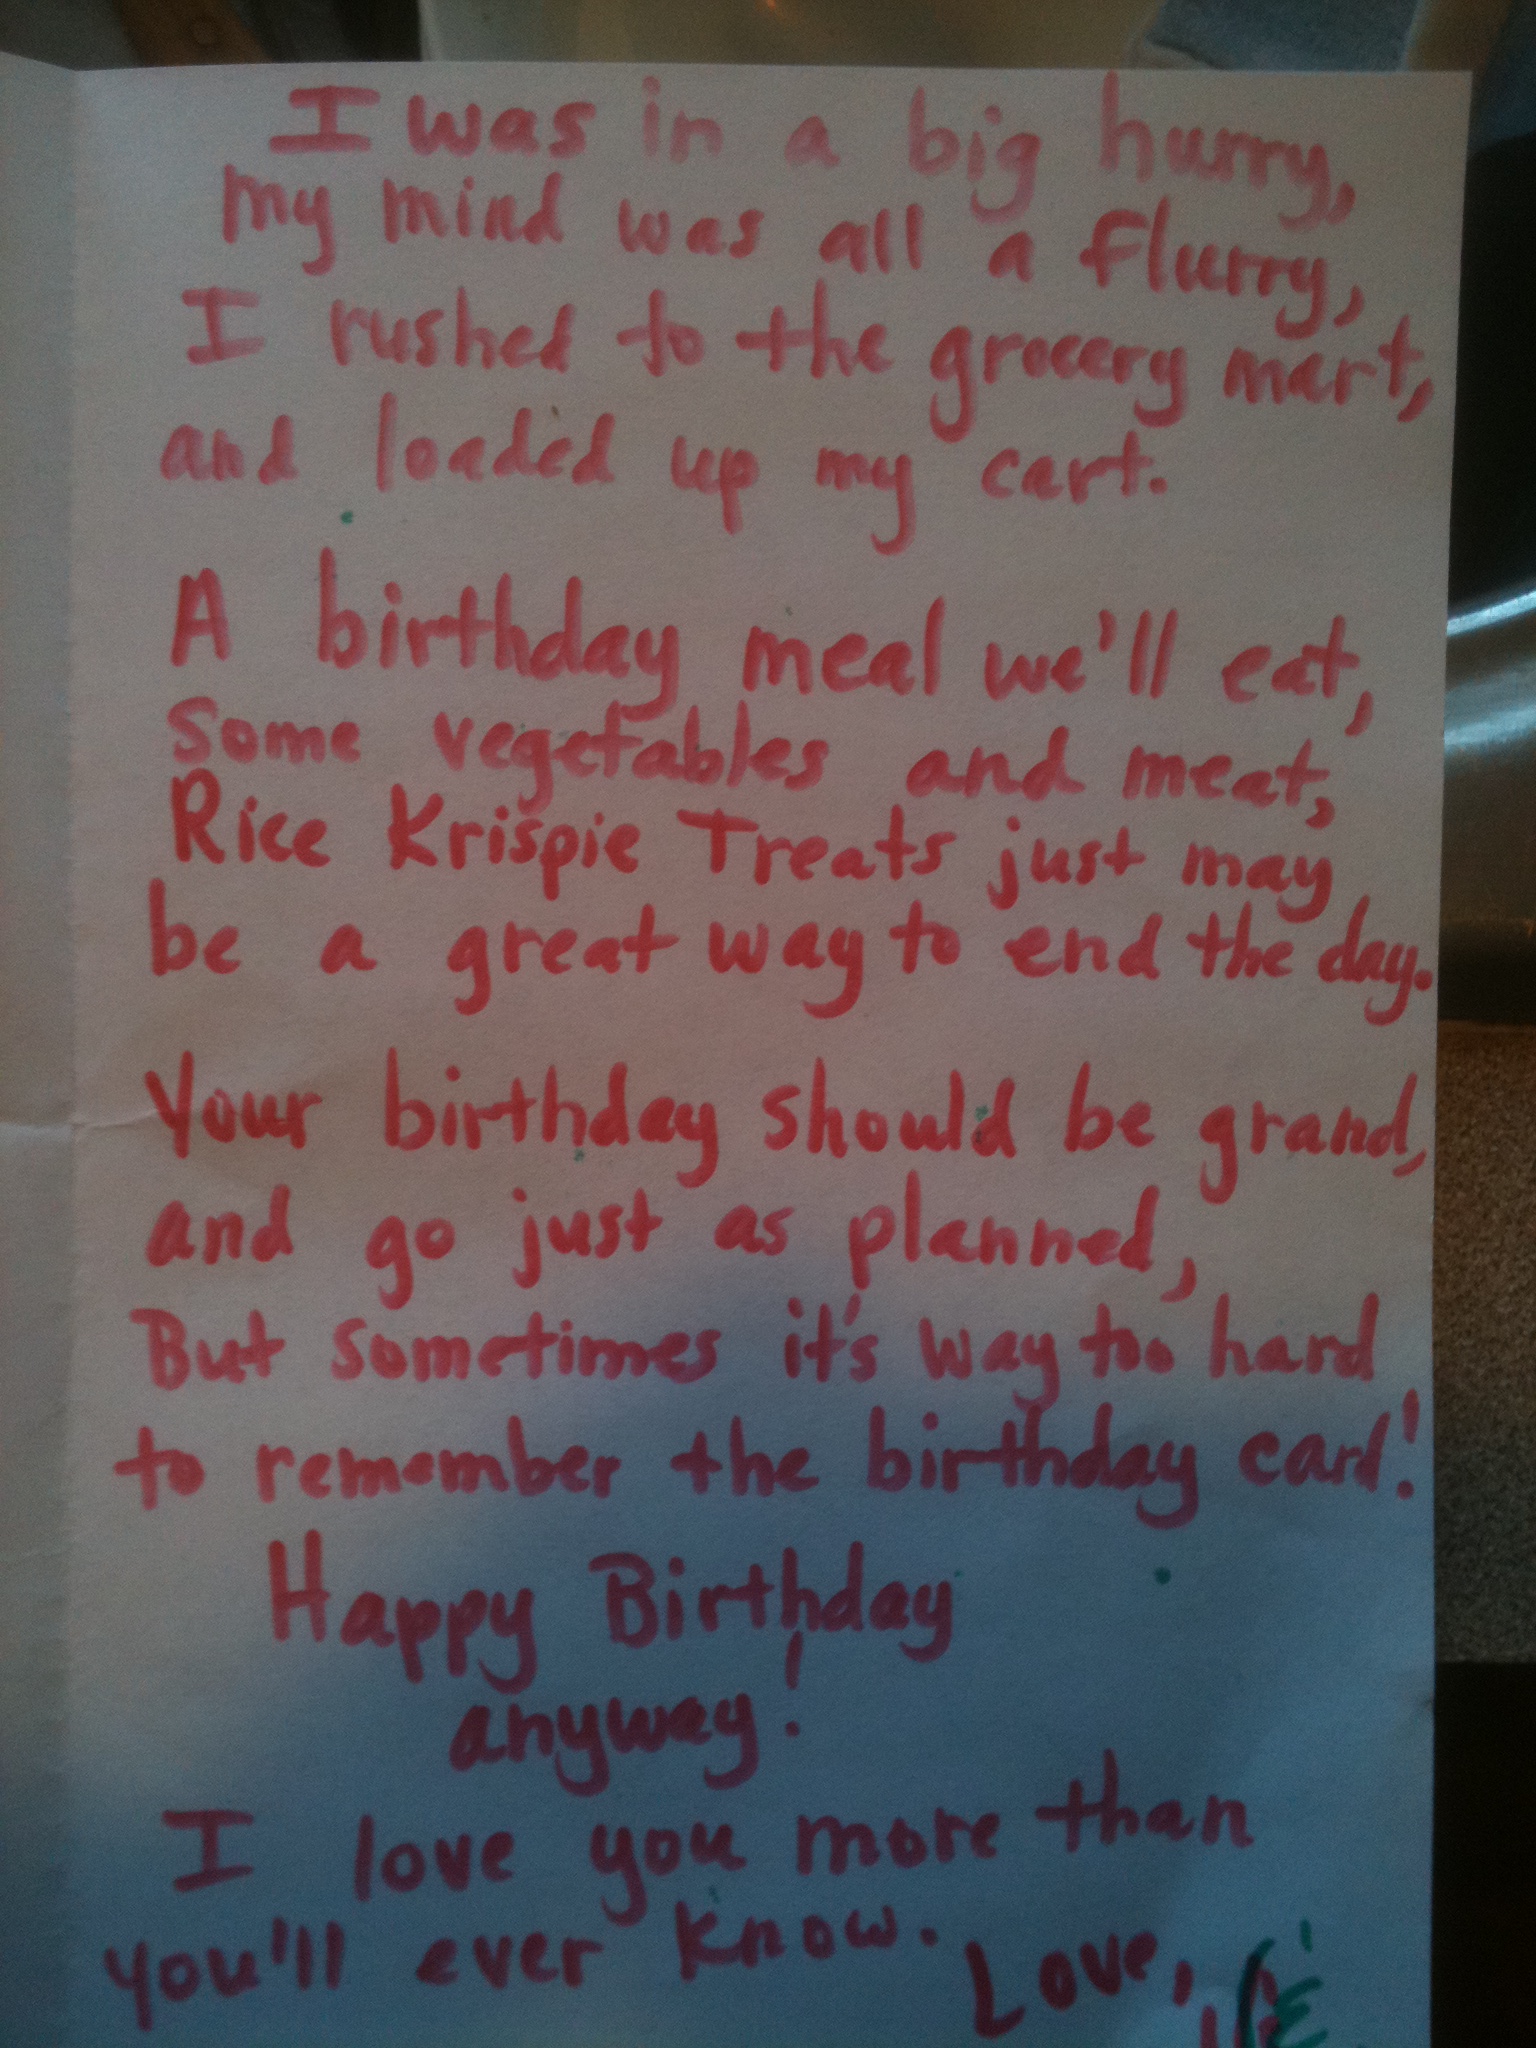 I was in a big hurry,
my mind was all a flurry,
I rushed to the grocery mart,
and loaded up my cart.
A birthday meal we'll eat,
Some vegetables and meat,
Rice Krispie Treats just may
be a great way to end the day.
Your birthday should be grand,
and go just as planned,
But sometimes it's way too hard
to remember the birthday card!
Happy Birthday
anyway!
I love you more than
you'll ever know.
Love,